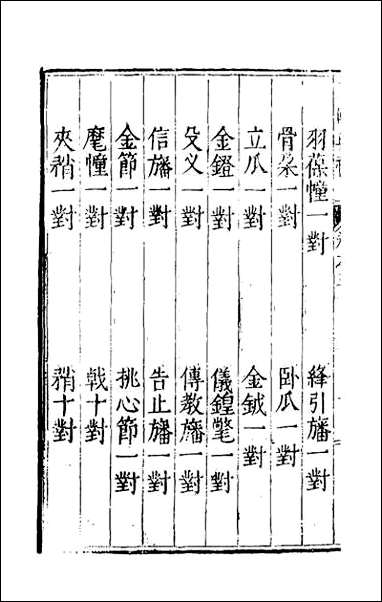 羽葆幢一對　絳引旛一對
骨朶一對　臥瓜一對
立瓜一對　金鉞一對
金鐙一對　儀鍠氅一對
殳义一對　傳教旛一對
信旛一對　告止旛一對
金節一對　挑心節一對
麾幢一對　戟十對
夾矟一對　矟十對